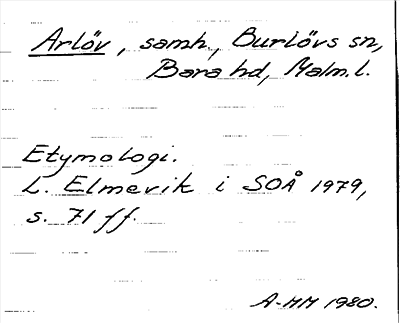 Arlöv, samh., Burlövs sn,
Bara hd, Malm. l.
Etymologi.
L. Elmevik i SOÅ 1979,
s. 71 ff.
A-MM 1980.